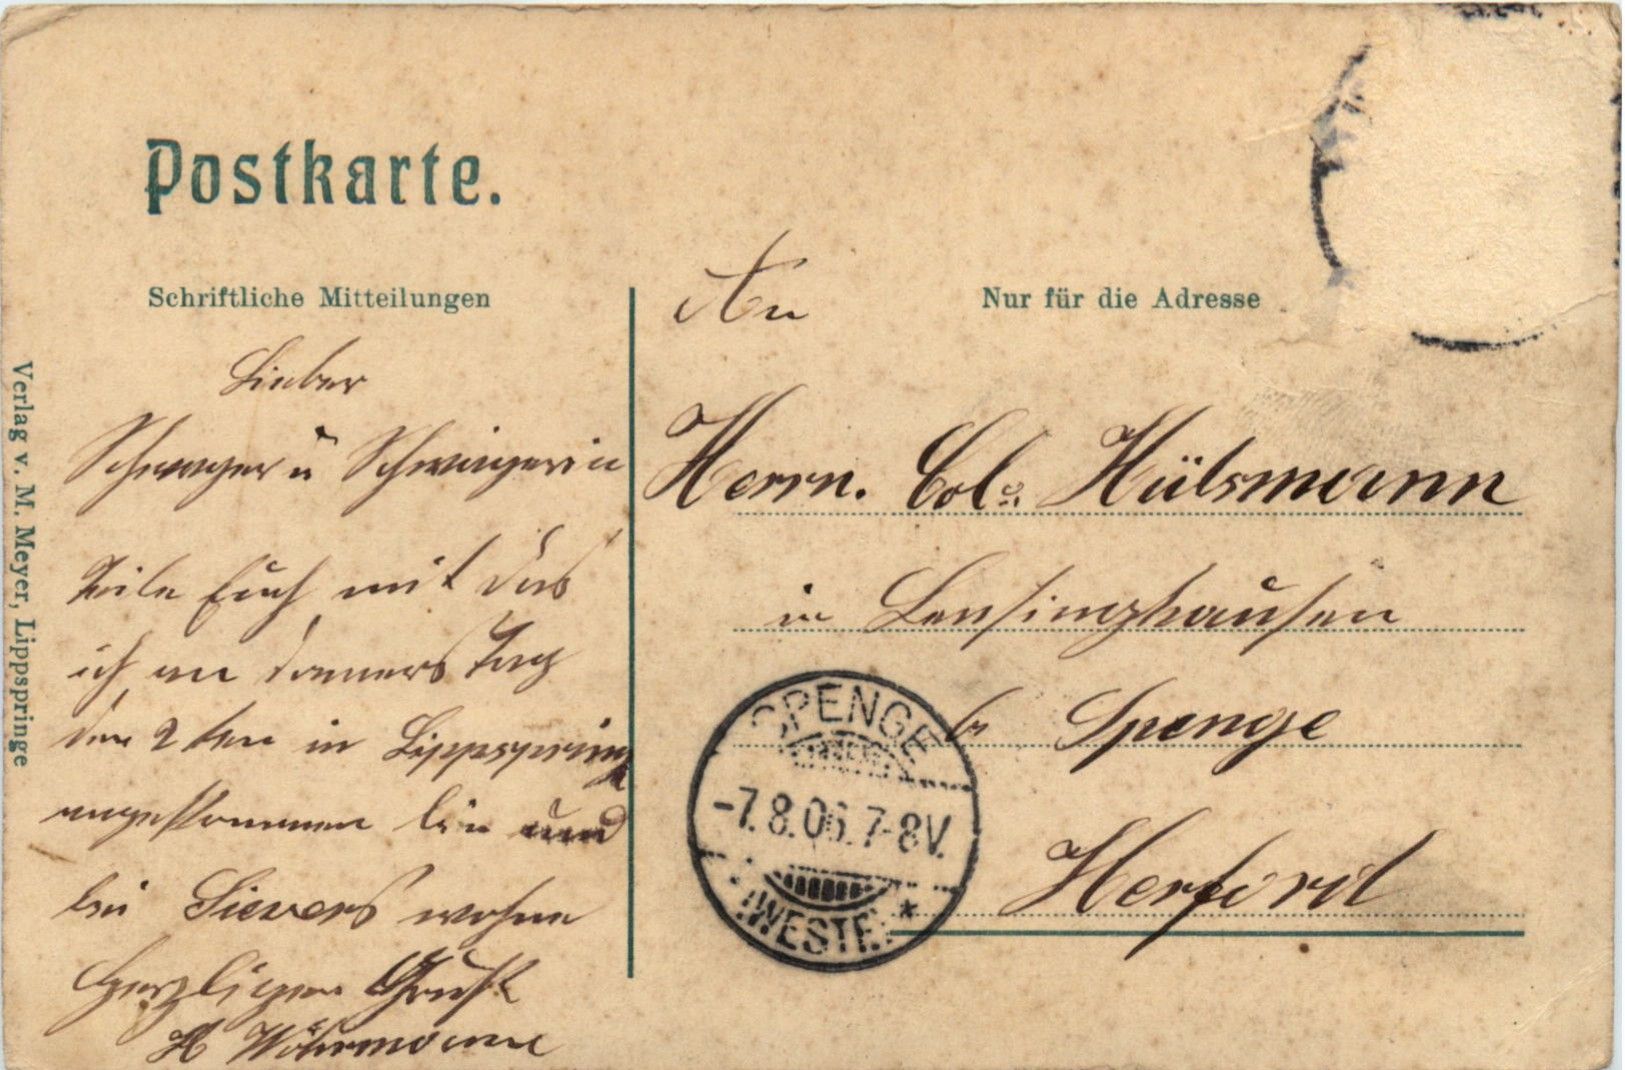 Postkarte.
Schriftliche Mitteilungen
Nur für die Adresse
Lieber
Schwager u Schwiegerin
teile Euch mit das
ich am Donners Tag
den 2ten in Lippspring
angekommen bin und
bei Sievers wohne
Herzlichen Gruß
H Wöhrmann
An
Herrn. Col. Hülsmann
in Lensinghausen
b Spenge
Herford
SPENGE
-7.8.06.7-8V.
(WESTF.) *
Verlag v. M. Meyer, Lippspringe